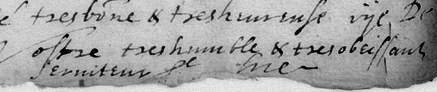 tresbone & tresheureuse vye De
Vostre treshumble & tresobeissant
Serviteur